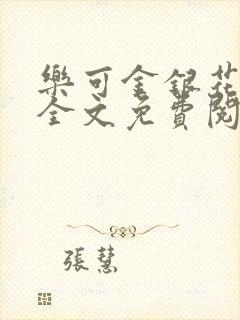 樂可金銀花
全文免費閱
張慧